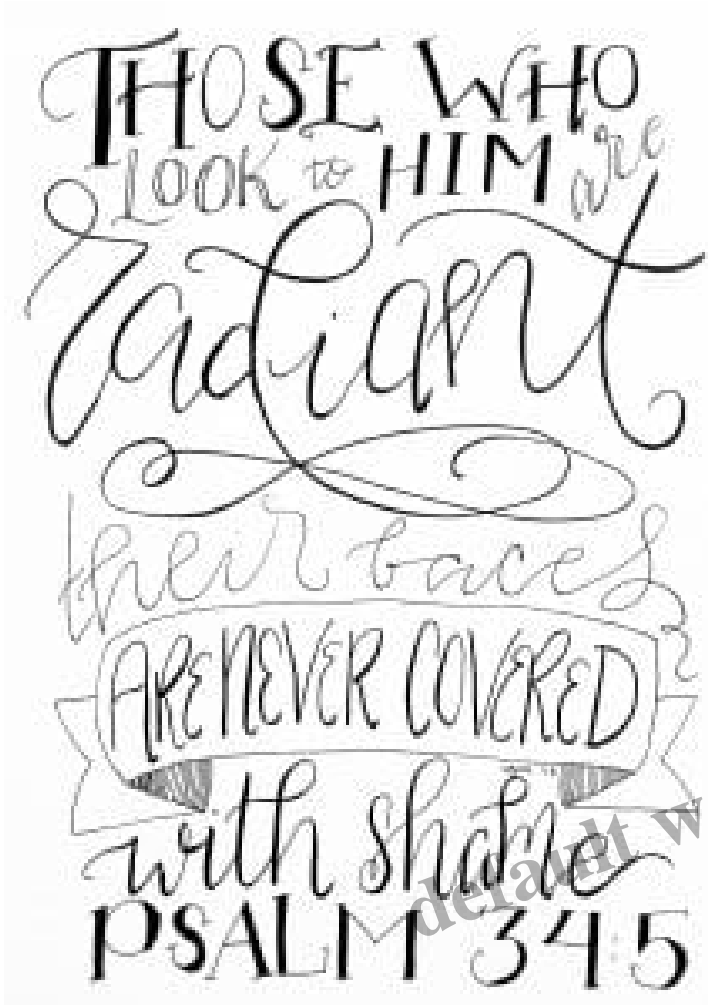 THOSE WHO
LOOK to HIM are
radiant
their baces
ARE NEVER COVERED
with shame
PSALM 34:5
default w